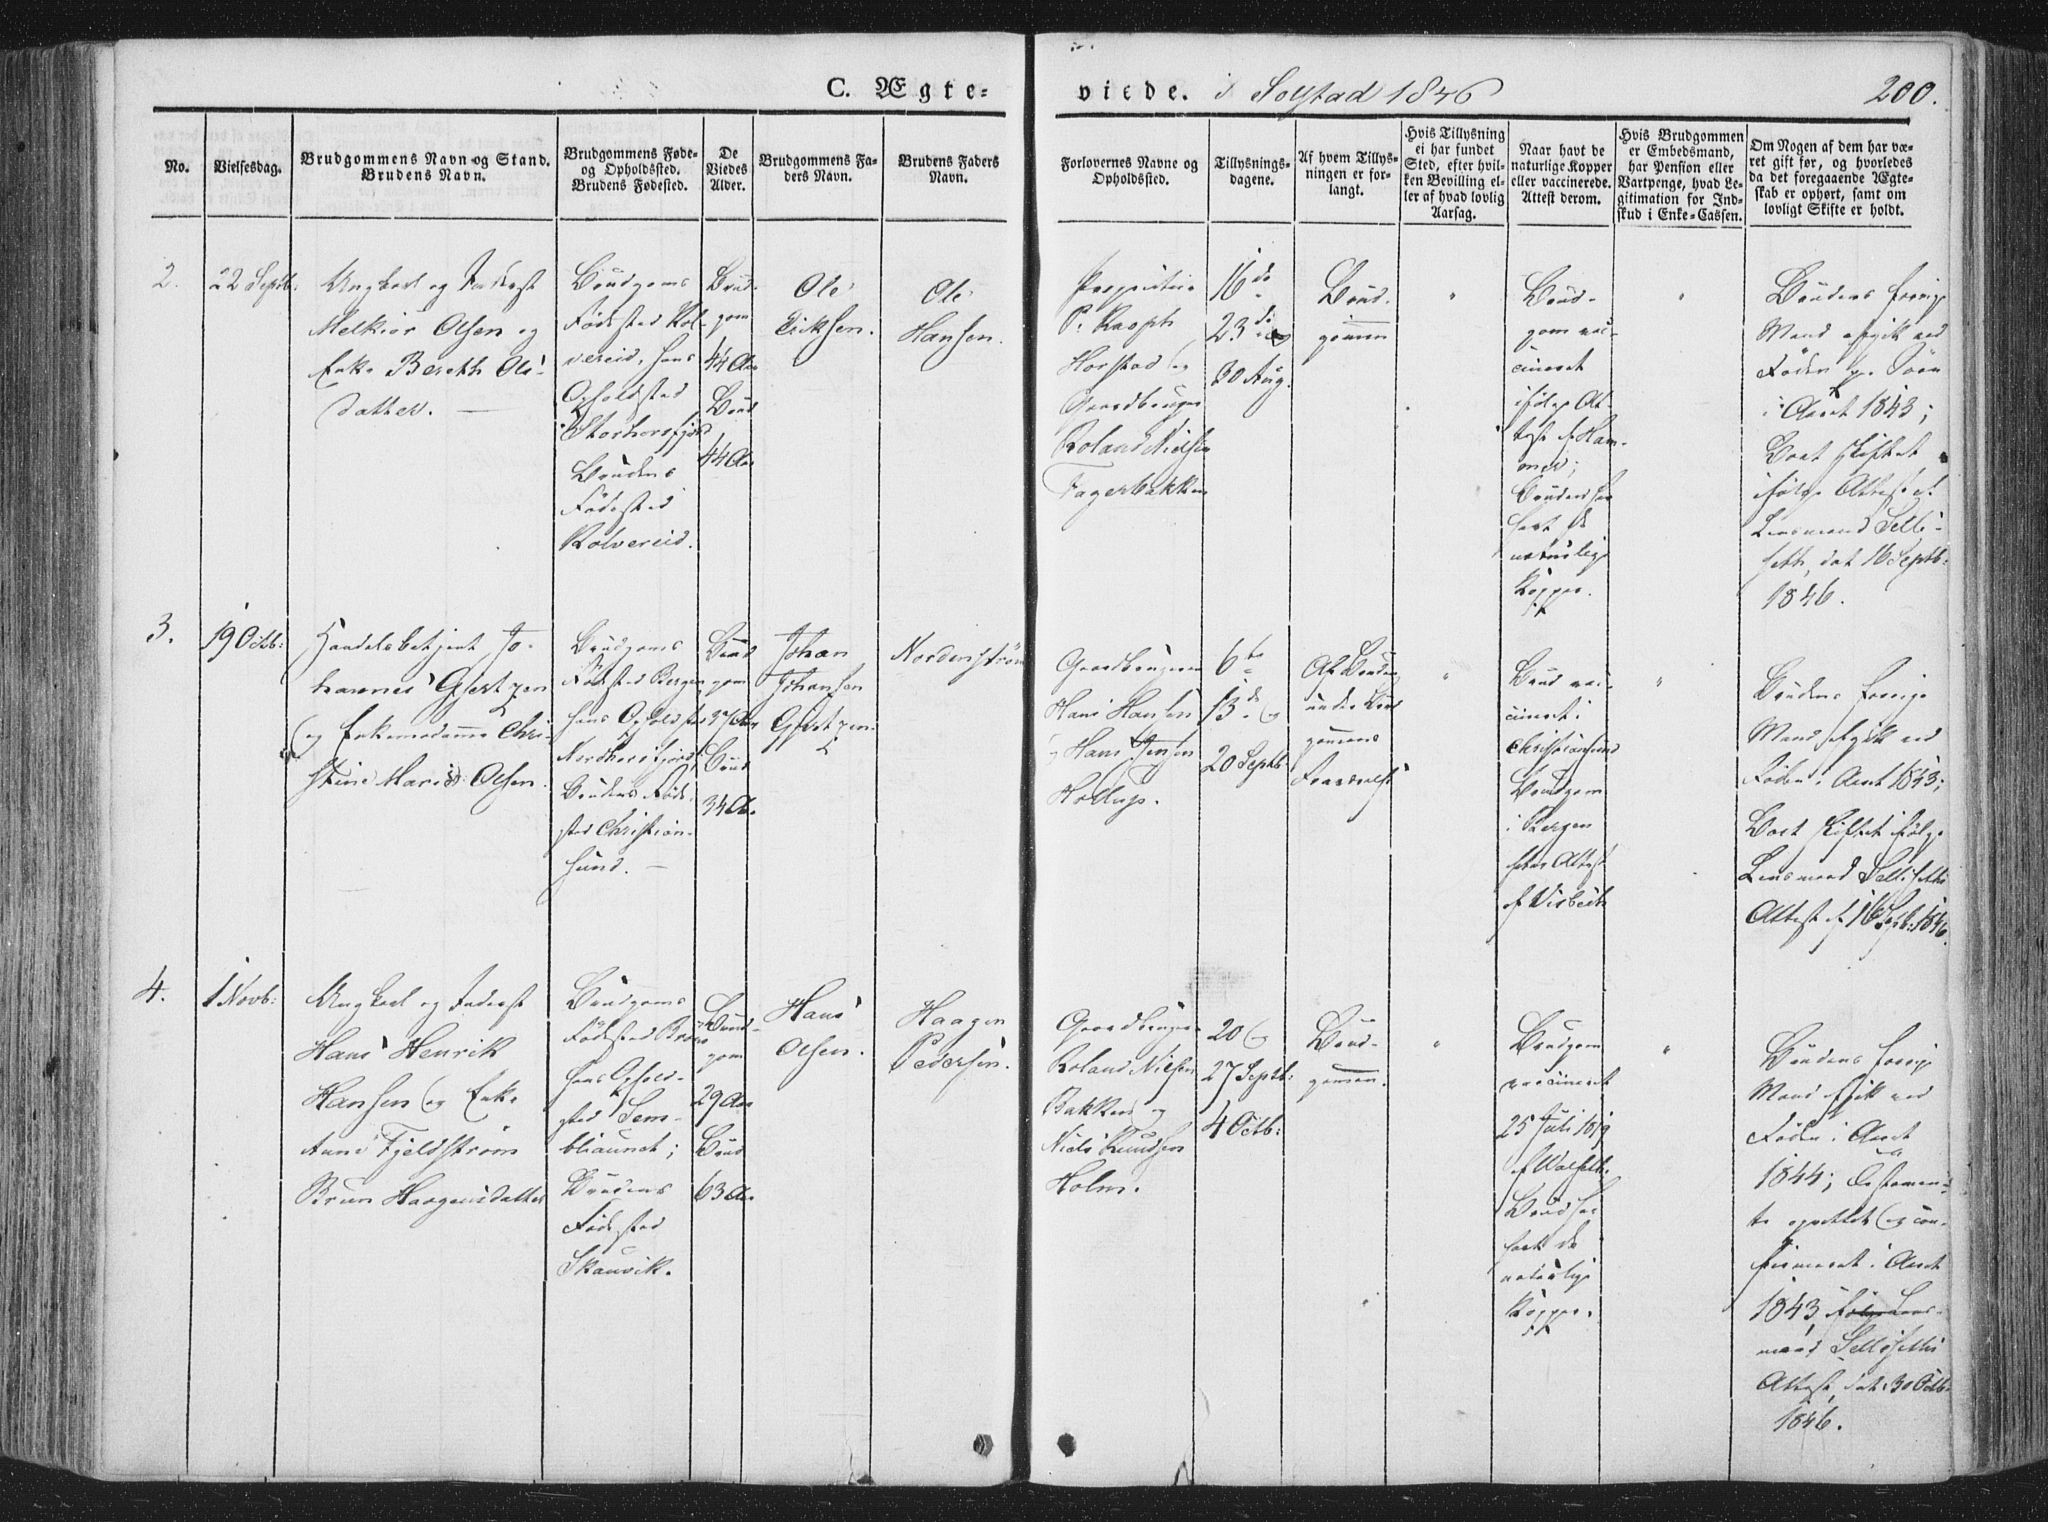 C. Ægte-
viede. i Solstad 1846
200.
No.
Vielsesdag.
Brudgommens Navn og Stand.
Brudens Navn.
Brudgommens Føde-
og Opholdssted.
Brudens Fødested.
De
Viedes
Alder.
Brudgommens Fa-
ders Navn.
Brudens Faders
Navn.
Forlovernes Navne og
Opholdssted.
Tillysnings-
dagene.
Af hvem Tillys-
ningen er for-
langt.
Hvis Tillysning
ei har fundet
Sted, efter hvil-
ken Bevilling el-
ler af hvad lovlig
Aarsag.
Naar havt de
naturlige Kopper
eller vaccinerede.
Attest derom.
Hvis Brudgommen
er Embedsmand,
har Pension eller
Vartpenge, hvad Le-
gitimation for Ind-
skud i Enke-Cassen.
Om Nogen af dem har væ-
ret gift før, og hvorledes
da det foregaaende Ægte-
skab er ophørt, samt om
lovligt Skifte er holdt.
2.
22 Septb:
Ungkarl og Inderst
Melkior Olsen og
Enke Bereth Ole-
datter. —
Brudgoms
Fødested Kol-
vereid, hans
Opholdsted
Storhorsfjord
Brudens
Fødested
Kolvereid.
Brud-
gom
44 Aar
Brud
44 Aar
Ole
Eriksen.
Ole
Hansen.
Proprietair
P. Rasch
Horstad og
Gaardbruger
Roland Nielsen
Fagerbakken
16de
23de og
30 Aug.
Brud-
gommen
"
Brud-
gom vac-
cineret
ifølge At-
test af Ham-
mer;
Bruden har
havt de
naturlige
Kopper.
"
Brudens forrige
Mand afgik ved
Døden paa Søen
i Aaret 1843;
Boet skiftet
ifølge Attest af
Lensmand Selli-
seth, dat 16 Septb:
1846.
3.
19 Octb:
Handelsbetjent Jo-
hannes Gjertzen
og Enkemadame Chri-
stine Marie Olsen.
Brudgoms
Fødested Bergen
hans Opholdsted
Nordhorsfjord,
Brudens Føde-
sted Christian-
sund. —
Brud
gom
37 Aar
Brud
34 Aar
Johan
Johansen
Gjertzen.
Nordenstrøm
Gaardbrugerne
Hans Hansen
og Hans Jensen
Hollup.
6te
13de og
20 Septb:
Af Bruden
under Brud
gommens
Fraværelse
"
Brud vac-
cineret i
Christiansund
Brudgom
i Bergen
efter Attest
af Wisbech
"
Brudens forrige
Mand afgik ved
Døden i Aaret 1843;
Boet skiftet ifølge
Lensmand Selliseths
Attest af 16 Septb: 1846.
4.
1 Novb:
Ungkarl og Inderst
Hans Henrik
Hansen og Enke
Anne Fjeldstrøm
Brun Haagensdatter
Brudgoms
Fødested
hans Ophold-
sted Sem-
bliaunet;
Brudens
Fødested
Skauvik.
Brud-
gom
29 Aar
Brud
63 Aar
Hans
Olsen.
Haagen
Pedersen.
Gaardbruger
Roland Nielsen
Bakken og
Niels Knudsen
Holm.
20 og
27 Septb:
4 Octb:
Brud-
gommen.
"
Brudgom
vaccineret
25 Juli 1819
Brud har
havt de
naturlige
Kopper.
"
Brudens forrige
Mand afgik ved
Døden i Aaret
1844; Testamen-
te oprettet og con-
firmeret i Aaret
1843 ifølge Lens-
mand Selliseths
Attest, dat. 30 Octb:
1846.